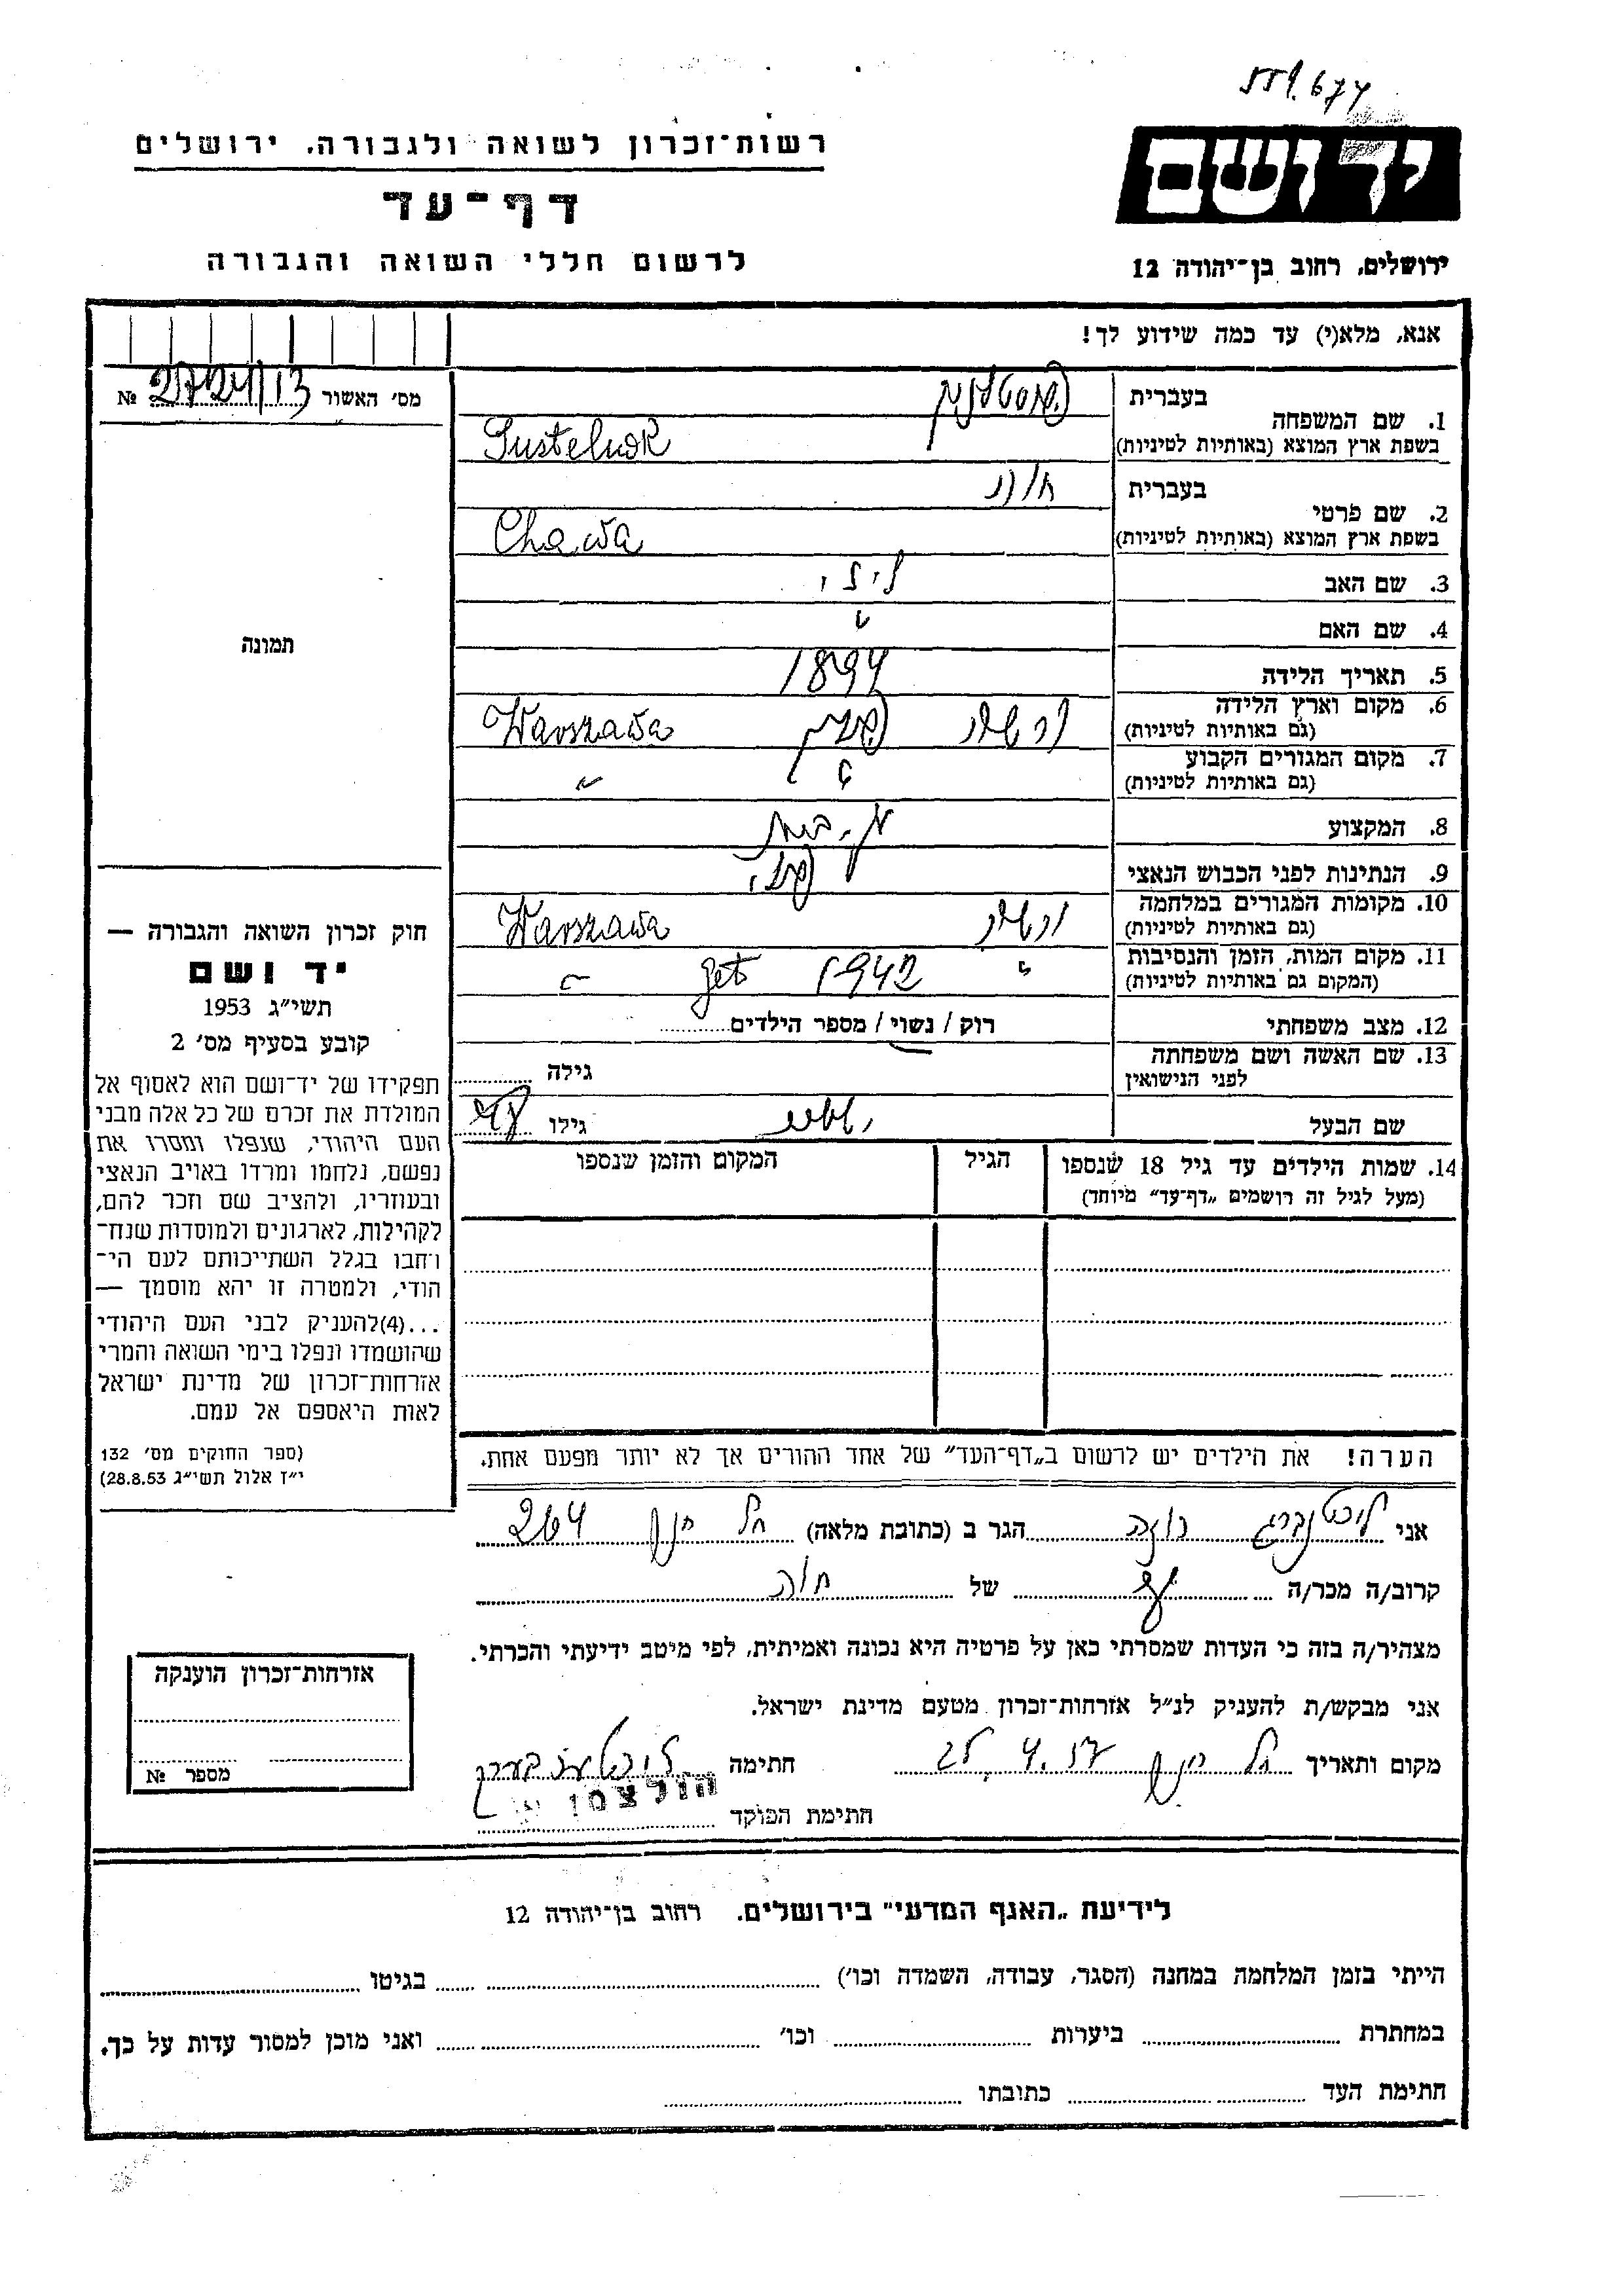 רשות־זכרון לשואה ולגבורה, ירושלים
דף־עד
לרשום חללי השואה והגבורה
יד ושם
ירושלים, רחוב בן־יהודה 12
אנא, מלא(י) עד כמה שידוע לך!
מס׳ האשור №
1. שם המשפחה
בעברית
בשפת ארץ המוצא (באותיות לטיניות)
2. שם פרטי
בעברית
חוה
בשפת ארץ המוצא (באותיות לטיניות) Chawa
3. שם האב
4. שם האם
5. תאריך הלידה 1894
6. מקום וארץ הלידה
(גם באותיות לטיניות) ורשה פולין Warszawa
7. מקום המגורים הקבוע
(גם באותיות לטיניות) " "
8. המקצוע
9. הנתינות לפני הכבוש הנאצי
10. מקומות המגורים במלחמה
(גם באותיות לטיניות) ורשה Warszawa
11. מקום המות, הזמן והנסיבות
(המקום גם באותיות לטיניות) " 1942 get "
12. מצב משפחתי רוק / נשוי / מספר הילדים
13. שם האשה ושם משפחתה
לפני הנישואין גילה
שם הבעל גילו
14. שמות הילדים עד גיל 18 שנספו
(מעל לגיל זה רושמים „דף־עד״ מיוחד)
הגיל
המקום והזמן שנספו
תמונה
חוק זכרון השואה והגבורה —
יד ושם
תשי״ג 1953
קובע בסעיף מס׳ 2
תפקידו של יד־ושם הוא לאסוף אל
המולדת את זכרם של כל אלה מבני
העם היהודי, שנפלו ומסרו את
נפשם, נלחמו ומרדו באויב הנאצי
ובעוזריו, ולהציב שם וזכר להם,
לקהילות, לארגונים ולמוסדות שנח־
רבו בגלל השתייכותם לעם הי־
הודי, ולמטרה זו יהא מוסמך —
...(4)להעניק לבני העם היהודי
שהושמדו ונפלו בימי השואה והמרי
אזרחות־זכרון של מדינת ישראל
לאות היאספם אל עמם.
(ספר החוקים מס׳ 132
י״ז אלול תשי״ג 28.8.53)
הערה! את הילדים יש לרשום ב„דף־העד״ של אחד ההורים אך לא יותר מפעם אחת.
אני ליכטנברג רוזה הגר ב (כתובת מלאה) תל חנן 264
קרוב/ה מכר/ה של חוה
מצהיר/ה בזה כי העדות שמסרתי כאן על פרטיה היא נכונה ואמיתית, לפי מיטב ידיעתי והכרתי.
אני מבקש/ת להעניק לנ״ל אזרחות־זכרון מטעם מדינת ישראל.
מקום ותאריך תל חנן חתימה
חתימת הפוקד
אזרחות־זכרון הוענקה
מספר №
לידיעת „האגף המדעי״ בירושלים. רחוב בן־יהודה 12
הייתי בזמן המלחמה במחנה (הסגר, עבודה, השמדה וכו׳) בגיטו
במחתרת ביערות וכו׳ ואני מוכן למסור עדות על כך.
חתימת העד כתובתו